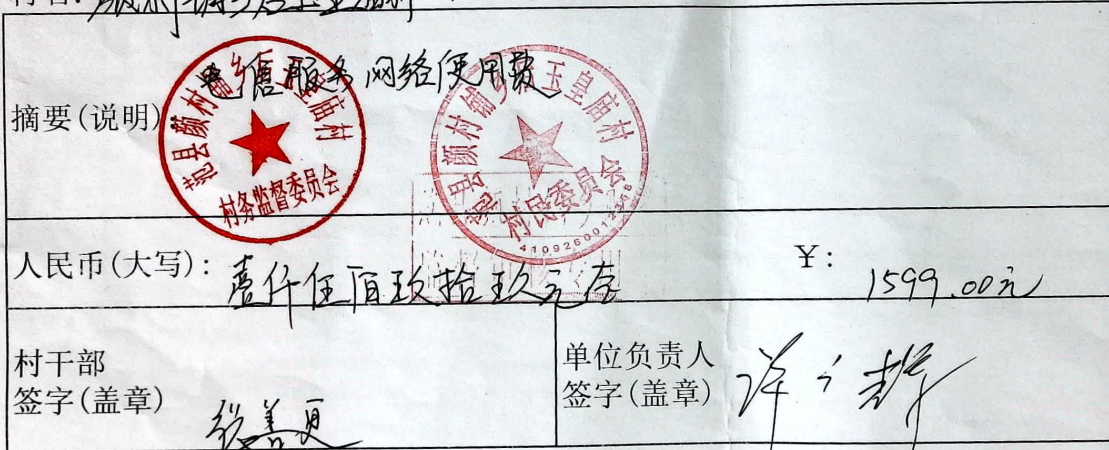 摘要(说明)
电信服务网络使用费
范县颜村铺乡玉皇庙村
村务监督委员会
范县颜村铺乡玉皇庙村
村民委员会
人民币(大写):壹仟伍佰玖拾玖元 ¥: 1599.00元
村干部
签字(盖章)
单位负责人
签字(盖章)